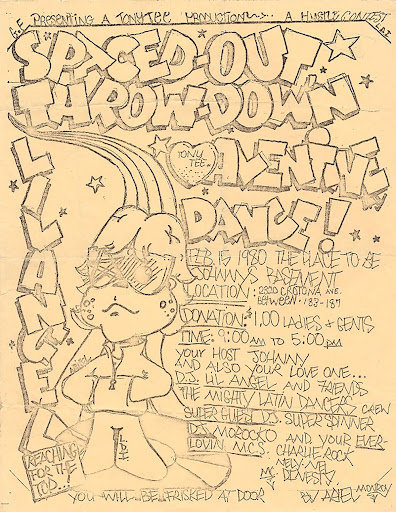 G.F. PRESENTING A TONY TEE PRODUCTION... A HUSTLE CONTEST
SPACED-OUT
THROW-DOWN
TONY TEE
VENTINE
DANCE!
LIL ANGEL
FEB 15 1980 THE PLACE TO BE
JOHNNYS BASEMENT
LOCATION: 2320 CROTONA AVE.
BETWEEN: 183-187
DONATION: $1.00 LADIES + GENTS
TIME: 9:00 PM TO 5:00
YOUR HOST JOHNNY
AND ALSO YOUR LOVE ONE...
D.J. LIL ANGEL AND FRIENDS
THE MIGHTY LATIN DANCERS CREW
SUPER GUEST D.J. SUPER SPINNER
D.J. MOROCKO AND YOUR EVER-
LOVIN M.C.S. CHARLIE ROCK
NELY-NEL
DINESTY
REACHING
FOR THE
TOP...
YOU WILL BE FRISKED AT DOOR
BY ARIEL